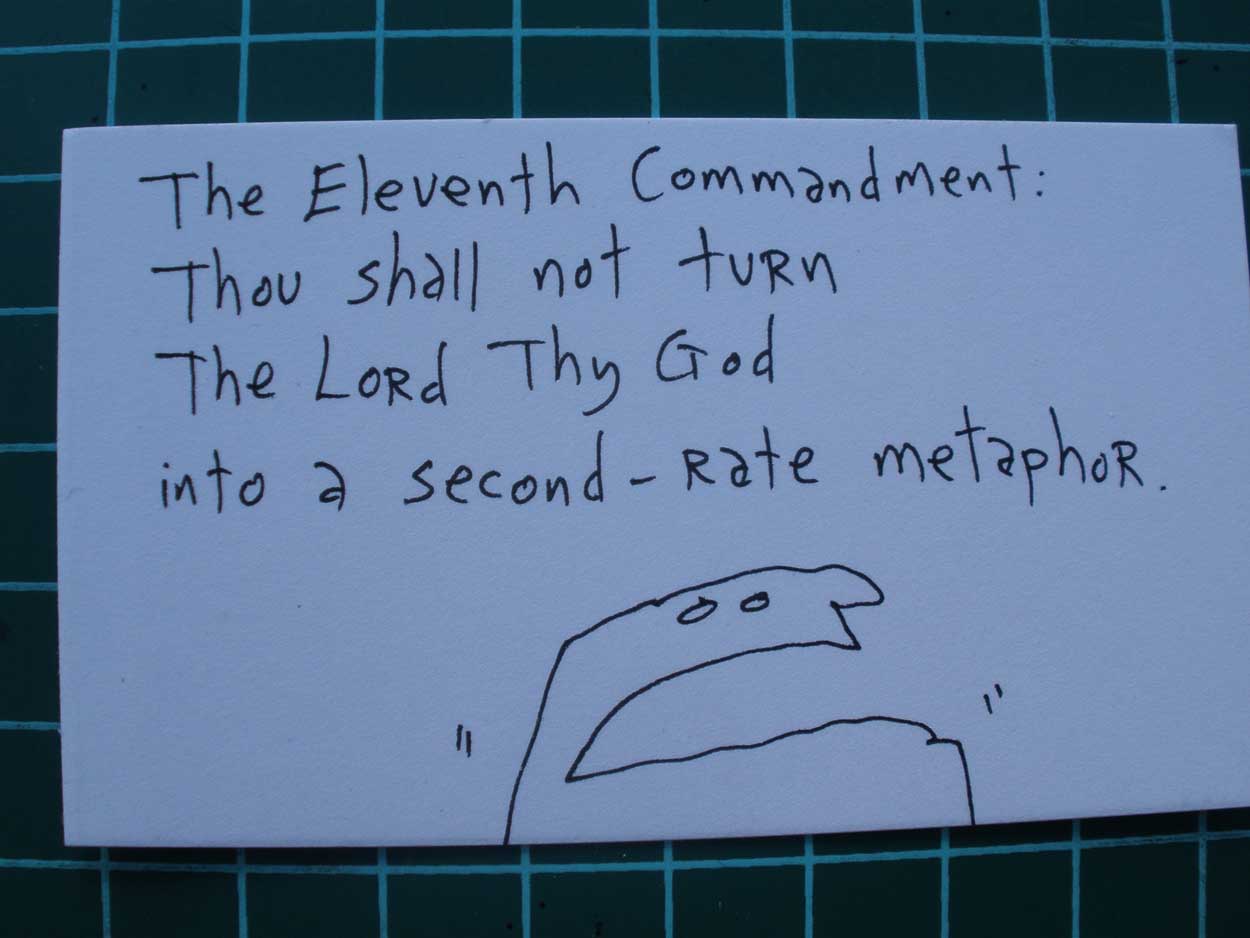 The Eleventh Commandment:
Thou shall not turn
The Lord Thy God
into a second-rate metaphor.